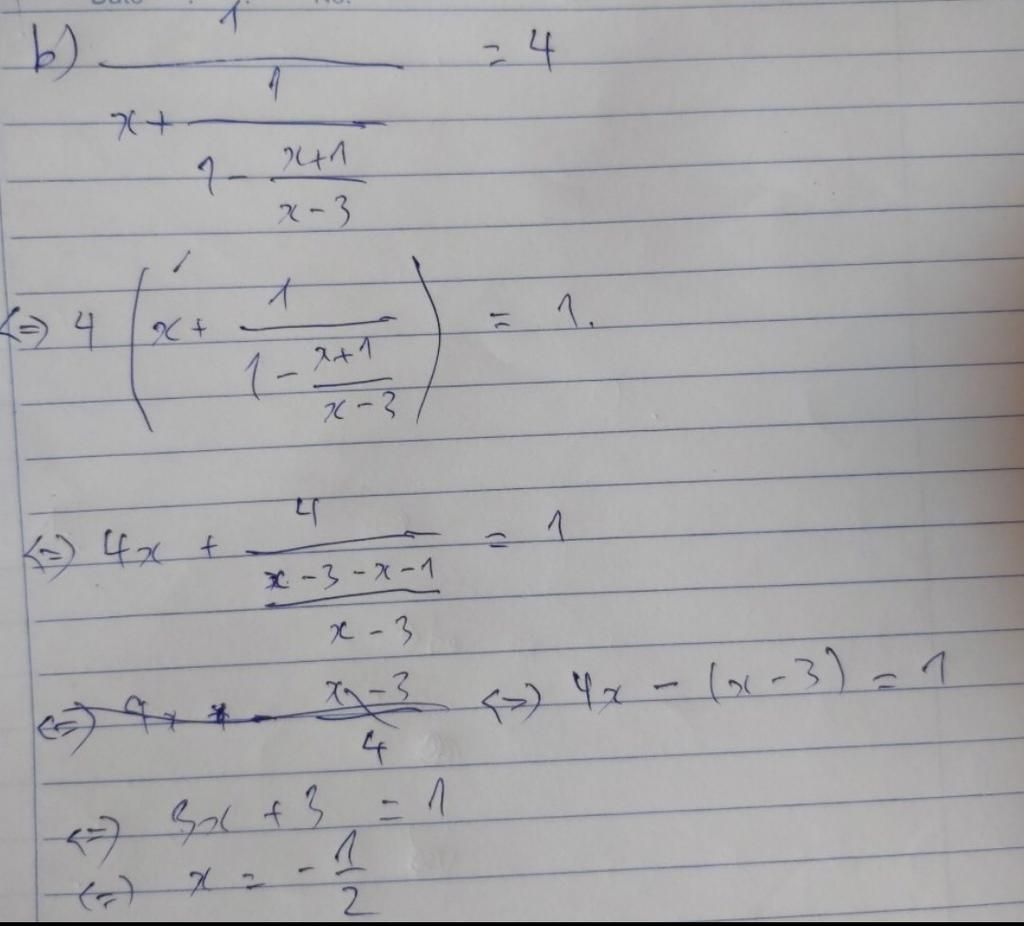 b) 1/(x + 1/(1 - (x+1)/(x-3))) = 4
<=> 4 (x + 1/(1 - (x+1)/(x-3))) = 1.
<=> 4x + 4/((x-3-x-1)/(x-3)) = 1
<=> 4x - (x-3)/4 <=> 4x - (x-3) = 1
<=> 3x + 3 = 1
<=> x = -1/2